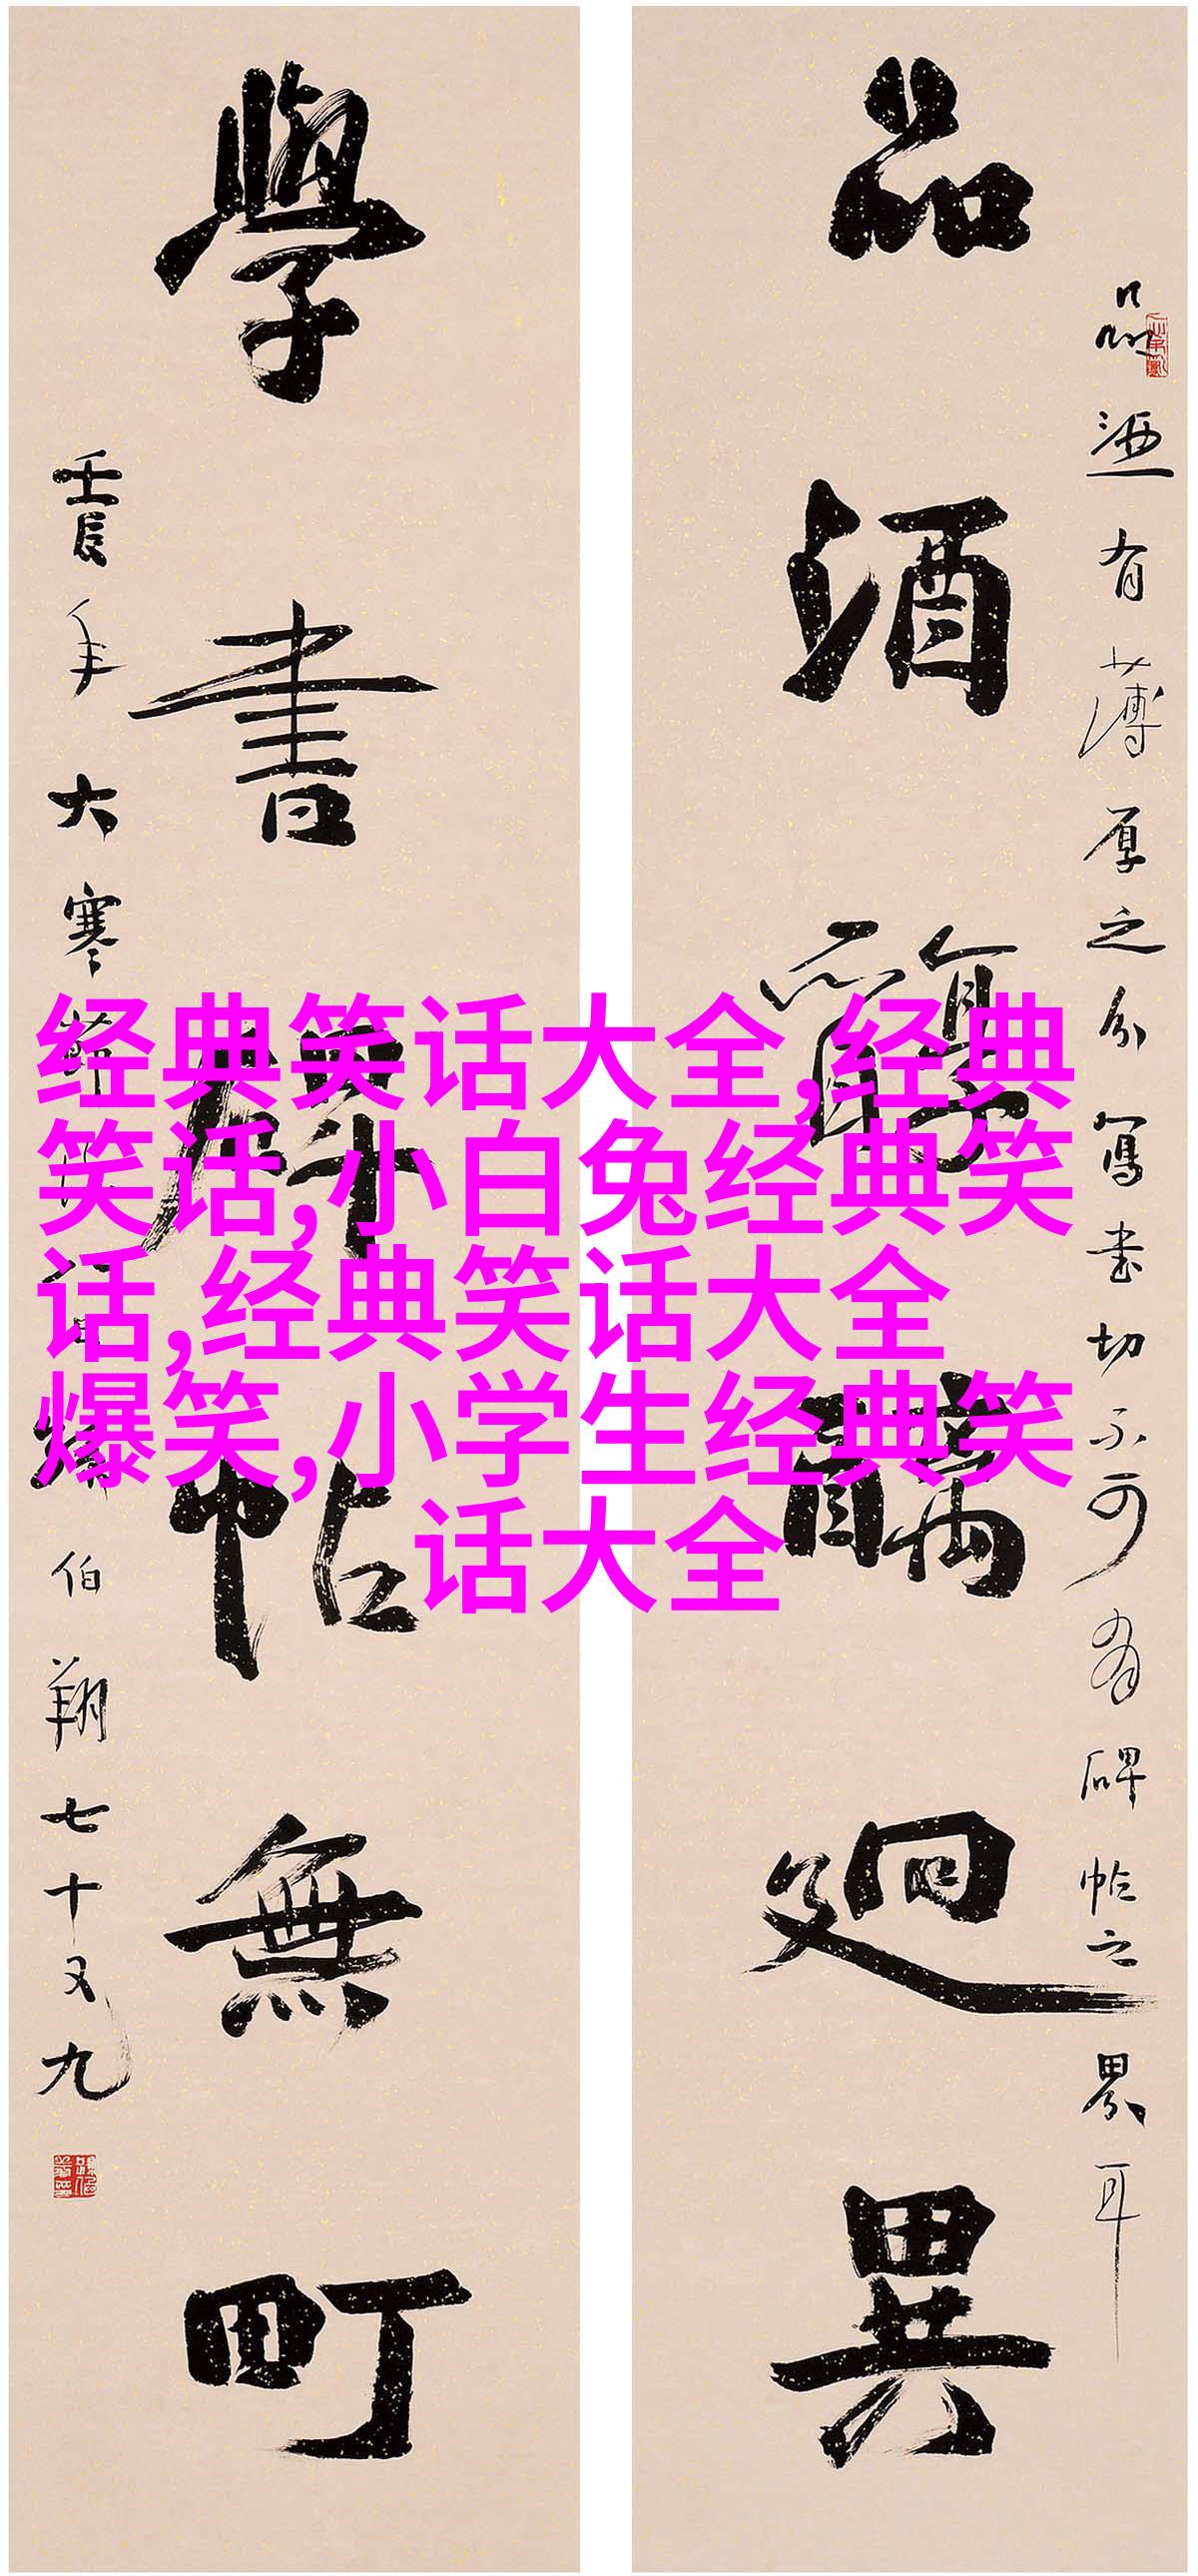 品酒醇醨迥異
品酒有薄厚之分寫書切不可有碑帖之界耳
學書碑帖無町
壬辰年大寒節
伯翔七十又九
经典笑话大全,经典
笑话,小白兔经典笑
话,经典笑话大全
爆笑,小学生经典笑
话大全